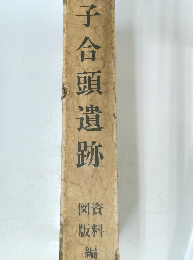 子合頭遺跡
資料
図版
編